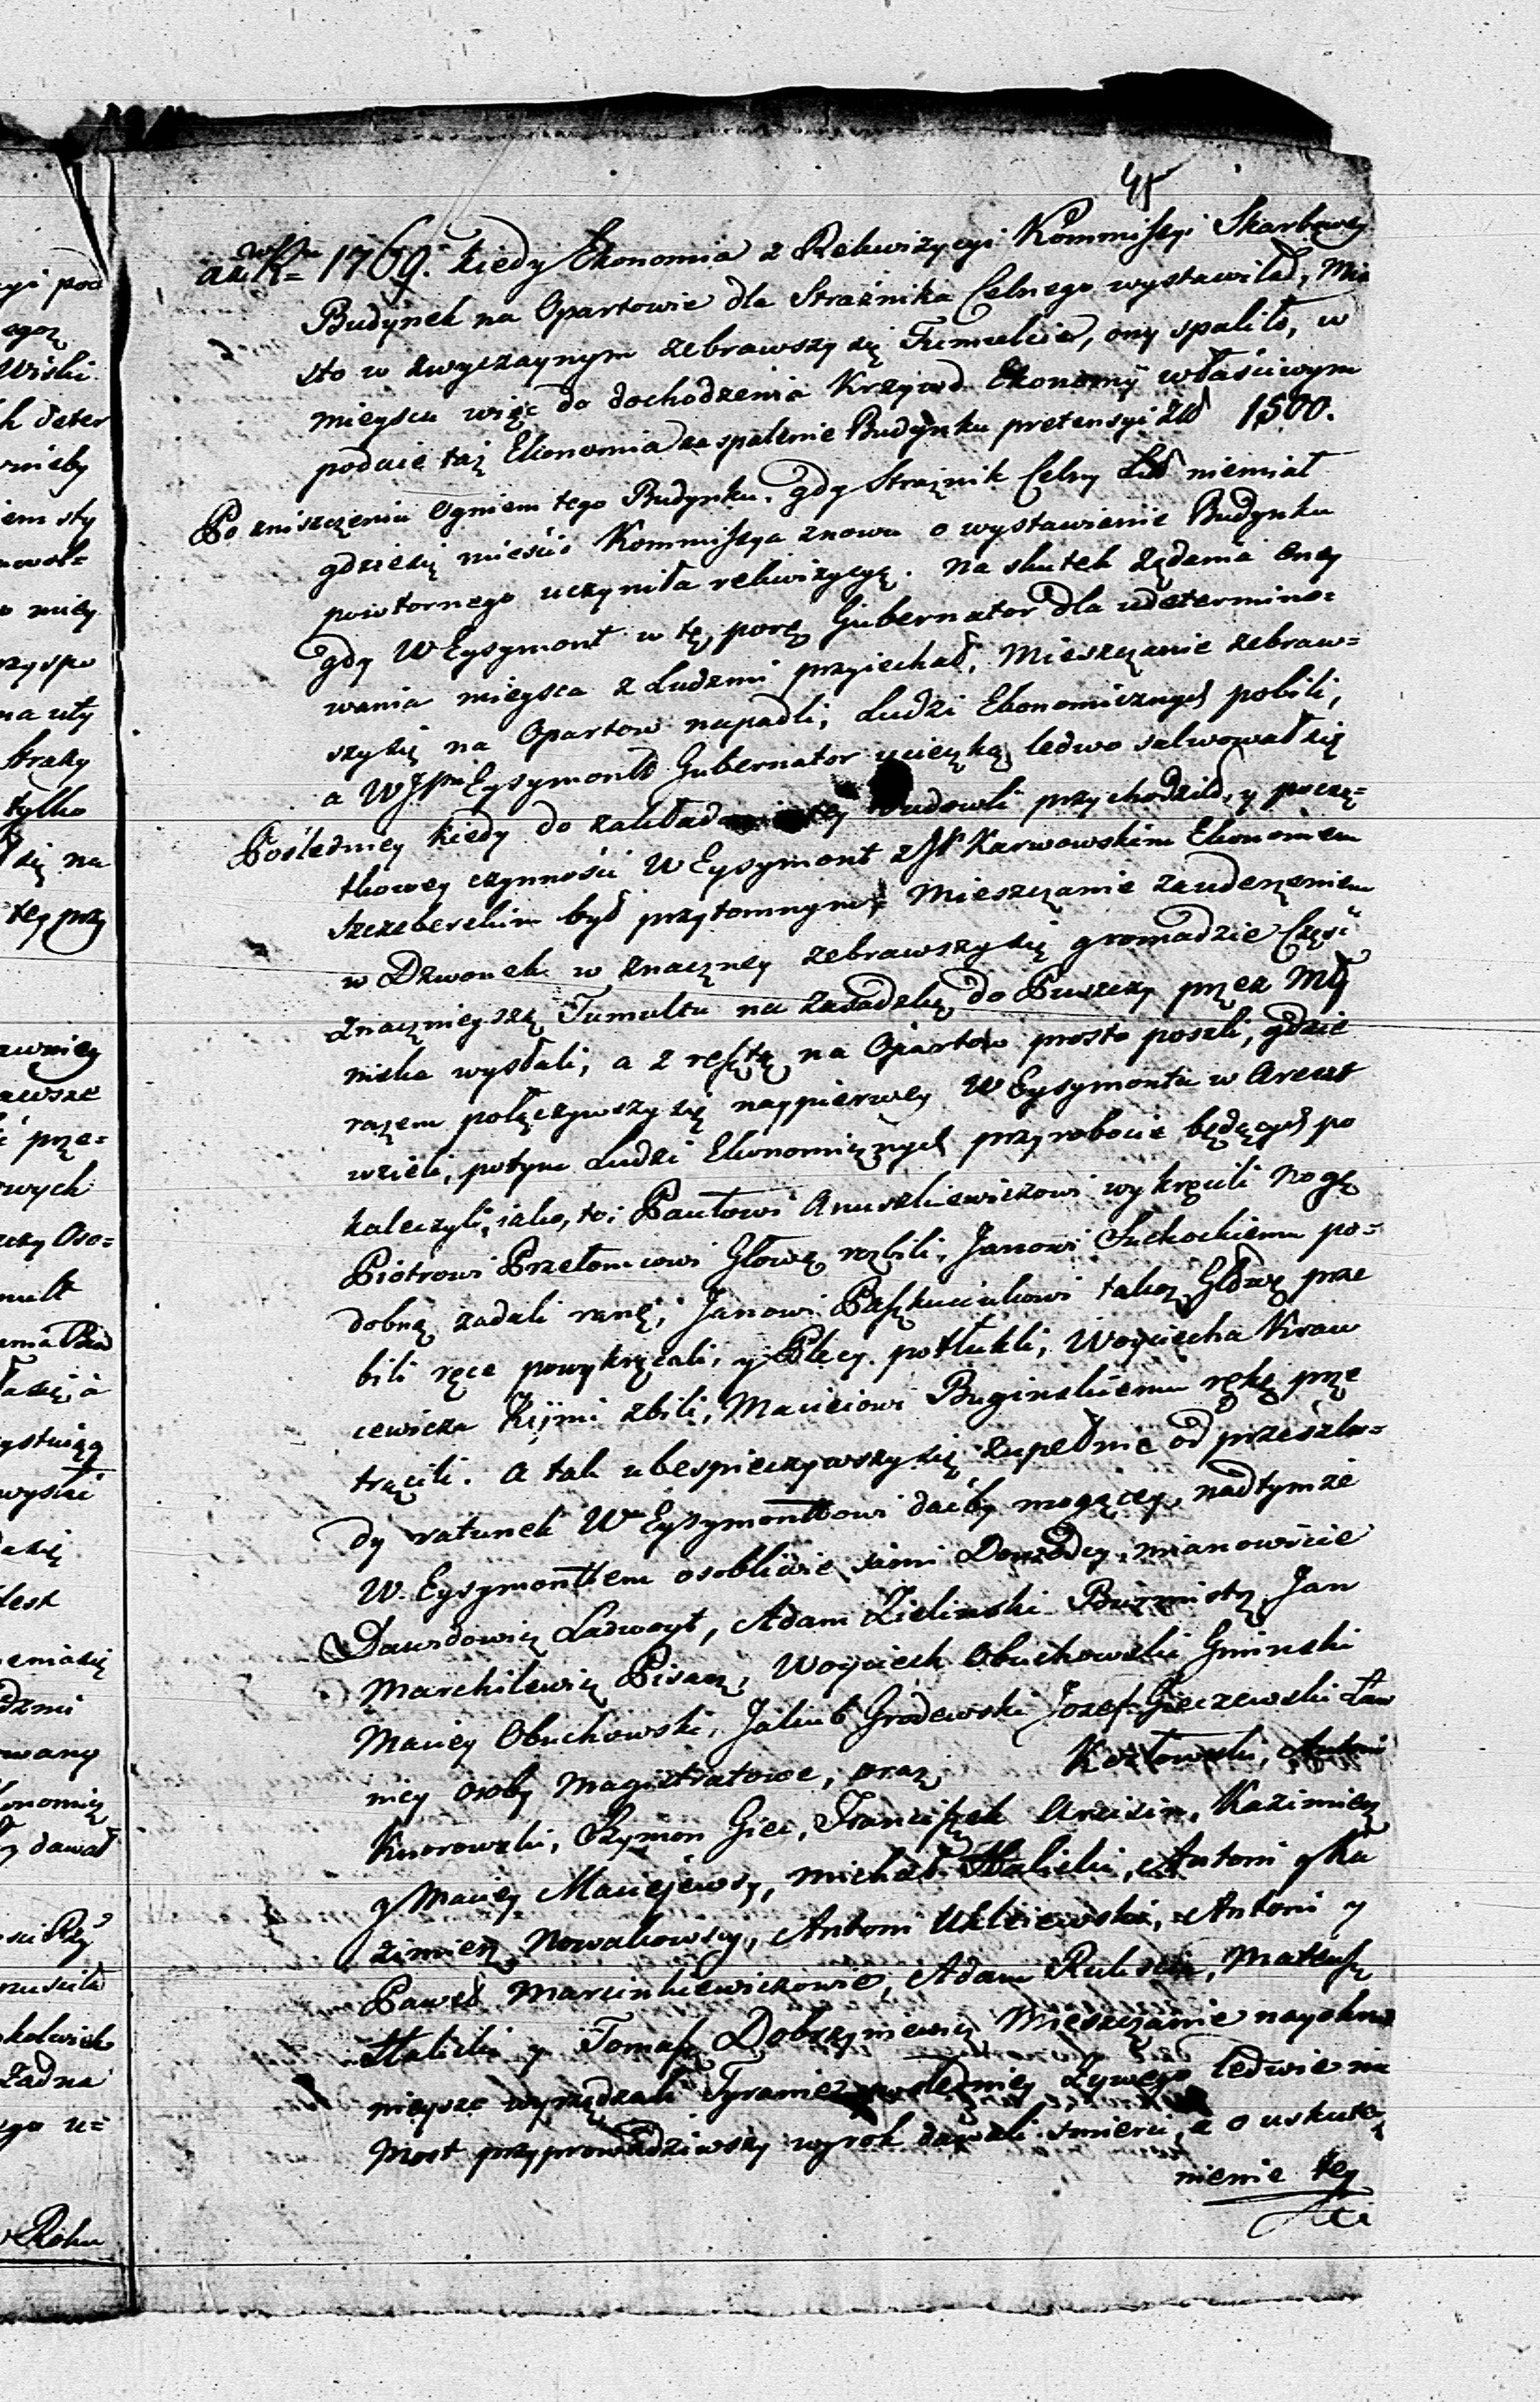 45
a w R= 1769. kiedy Ekonomia z Rekwizycyi Kommissyi Skarbowey
Budynek na Opartowie dla Strażnika Celnego wystawiła, Mia
sto w zwyczaynym zebrawszy się Tumulcie, ony spaliło, w
mieyscu więc do dochodzenia Krzywd Ekonomij właściwym
podaie taż Ekonomia za spalenie Budynku pretensyi Złł 1500.
Po zniszczeniu Ogniem tego Budynku, gdy Strażnik Celny niemiał
gdzie się mieścić Kommissya znowu o wystawienie Budynku
powtornego uczyniła rekwizycyą. na skutek żądania oney
gdy W Eysymont w tę porę Gubernator dla udetermino=
wania mieysca z Ludzmi przyiechał, Mieszczanie zebraw=
szy się na Opartow napadli, Ludzi Ekonomicznych pobili,
a WJPan Eysymontt Gubernator ucieczką ledwo salwował się
Pośledniey kiedy do zakładania tey Budowli przychodziło, y począ=
tkowey czynności W Eysymont z JP Karwowskim Ekonomem
Szczeberskim był przytomnym, Mieszczanie za uderzeniem
w Dzwonek w znaczney zebrawszy się gromadzie Część
znacznieyszą Tumultu na Zasadzkę do Puszczy przez Mły
niska wysłali, a z resztą na Opartow prosto poszli, gdzie
razem połączywszy się naypierwey W Eysymonta w Areszt
wzieli, potym Ludzi Ekonomicznych przy robocie będących po
kaleczyli, iako, to: Pawłowi Anuszkiewiczowi wykręcili nogę
Piotrowi Przełomcowi Głowę rozbili, Janowi Suchockiemu po=
dobną zadali ranę, Janowi także Głowę prze
bili ręce powykręcali, y Plecy potłukli, Woyciecha Kraw
cewicza Kijmi zbili, Macieiowi Buginskiemu rękę prze
trącili. A tak ubespieczywszy się zupełnie od przeszko=
dy ratunek Wu Eysymonttowi dać by mogącey, nad tymże
W. Eysymonttem osobliwie sami Dowodcy, mianowicie
Dawidowicz Ladwoyt, Adam Zielinski Burmistrz, Jan
Marchilewicz Pisarz, Woyciech Obuchowski Gminski
Maciey Obuchowski, Jakub Grodewski Jozef Gieczewski Ław
nicy osoby Magistratowe, oraz Kozłowski, Antoni
Knorowski, Szymon Giec, Franciszek, Kazimierz
y Maciey Maciejewscy, Michał Halicki, Antoni y Ka
zimierz Nowakowscy, Antoni Ukleiewski, Antoni y
Paweł Marcinkiewiczowie, Adam, Mateusz
Halicki y Tomasz Dobrzyniewicz Mieszczanie nayokru
tnieysze wyrządzali Tyranie, pośledniey żywego ledwie na
Most przyprowadziwszy wyrok dawali śmierci, a o uskutecz
nienie tey